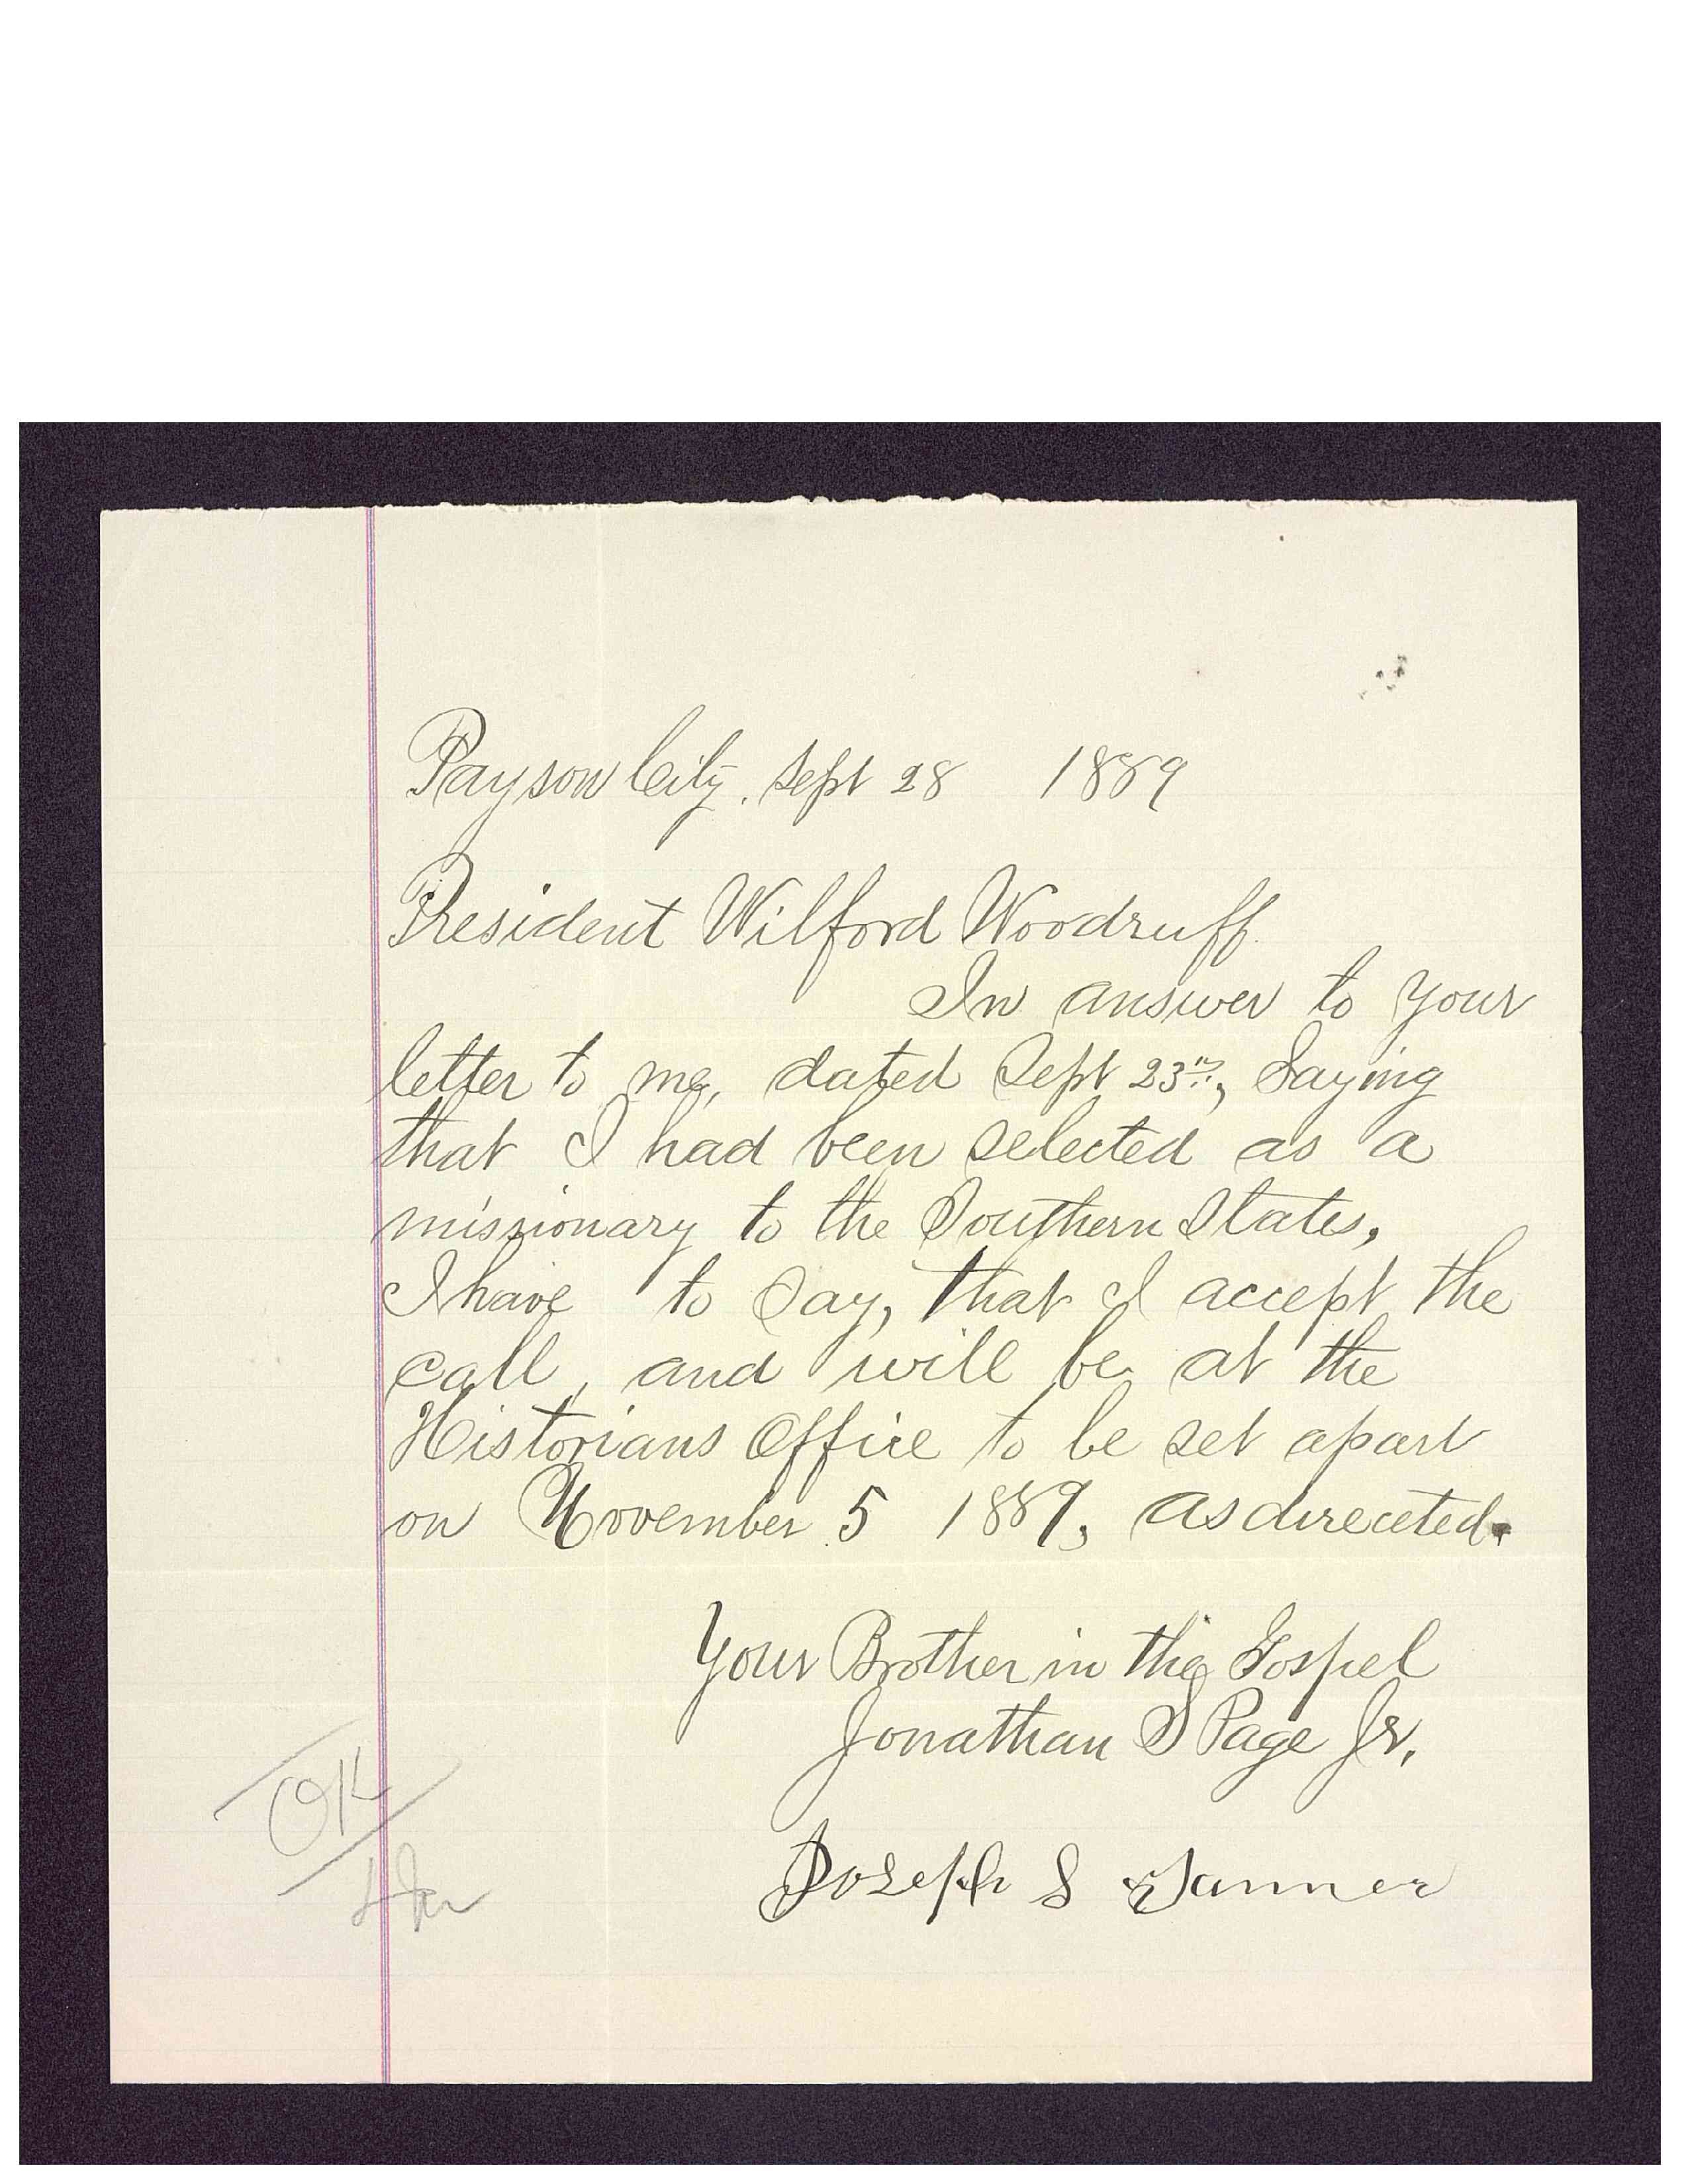 Payson City. Sept 28 1889
President Wilford Woodruff.
In answer to your
letter to me, dated Sept 23rd, Saying
that I had been selected as a
missionary to the Southern States,
I have to Say, that I accept the
call, and will be at the
Historians Office to be set apart
on November 5 1889, as direceted.
Your Brother in the Gospel
Jonathan S Page Jr.
Joseph S Tanner
OK